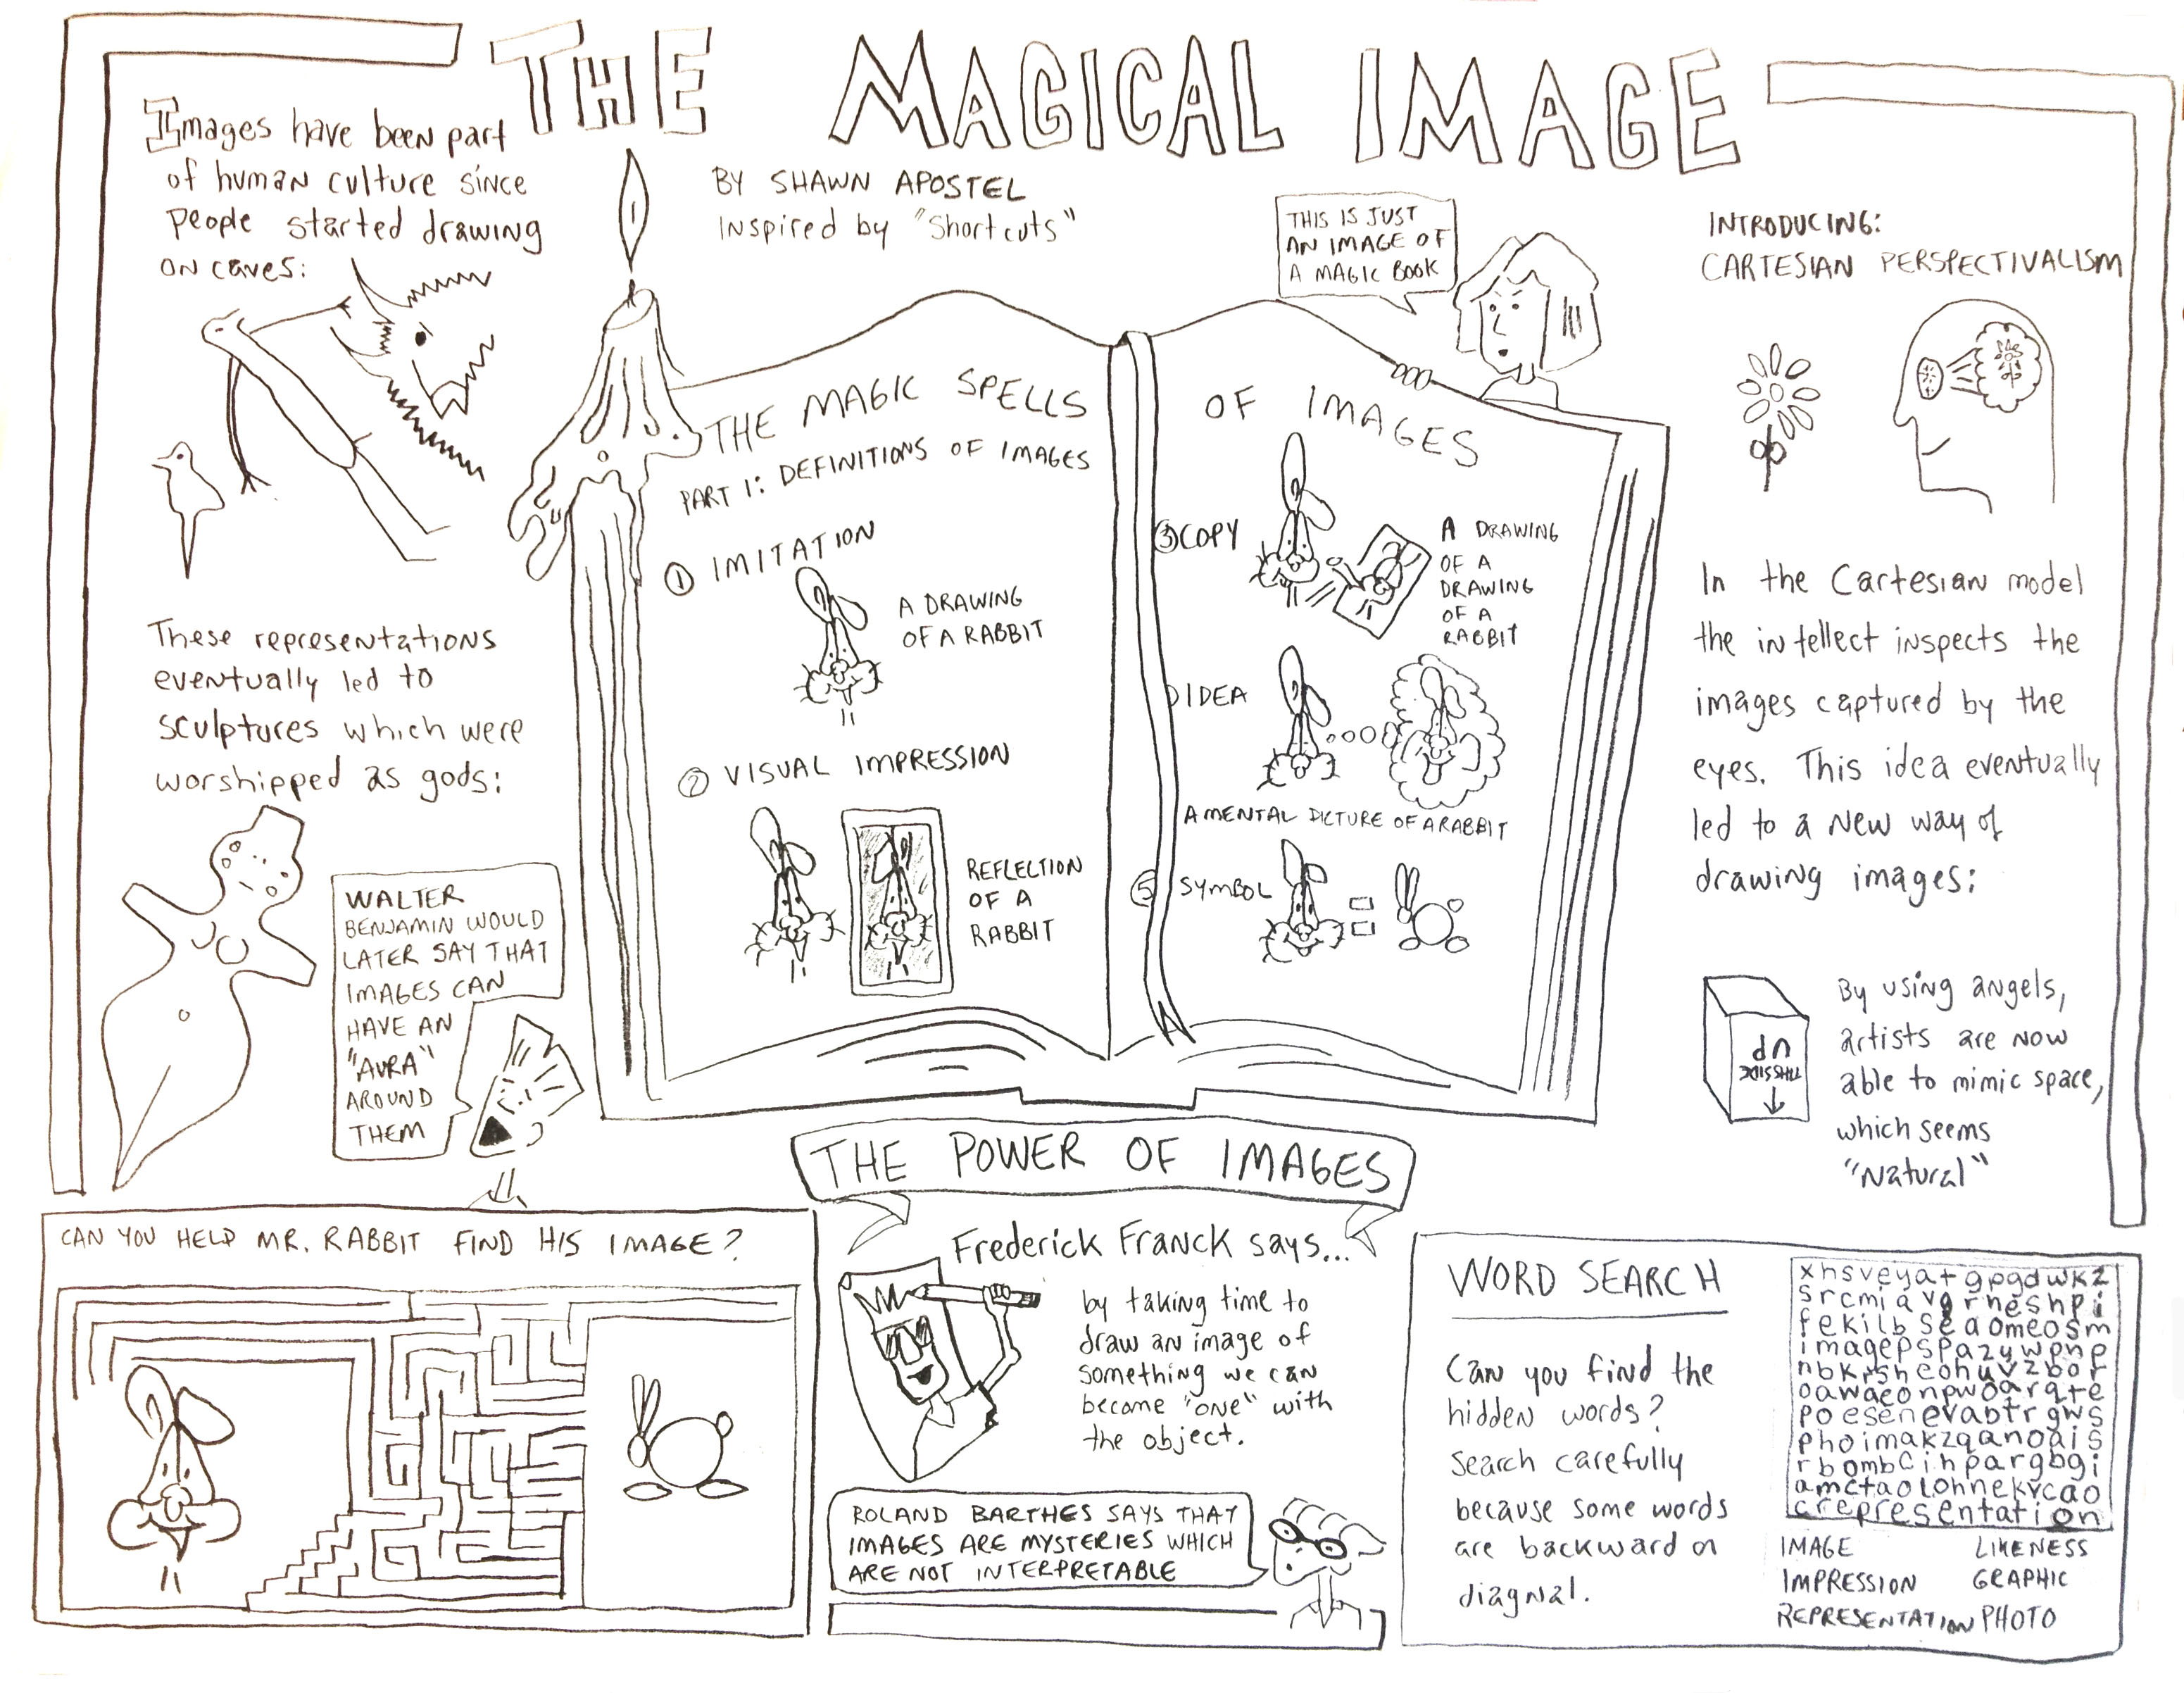 THE MAGICAL IMAGE
BY SHAWN APOSTEL
Inspired by "Shortcuts"
Images have been part
of human culture since
people started drawing
on caves:
These representations
eventually led to
sculptures which were
worshipped as gods:
WALTER
BENJAMIN WOULD
LATER SAY THAT
IMAGES CAN
HAVE AN
"AURA"
AROUND
THEM
THIS IS JUST
AN IMAGE OF
A MAGIC BOOK
THE MAGIC SPELLS
PART 1: DEFINITIONS OF IMAGES
① IMITATION
A DRAWING
OF A RABBIT
② VISUAL IMPRESSION
REFLECTION
OF A
RABBIT
OF IMAGES
③ COPY
A DRAWING
OF A
DRAWING
OF A
RABBIT
IDEA
A MENTAL PICTURE OF A RABBIT
⑤ SYMBOL
INTRODUCING:
CARTESIAN PERSPECTIVALISM
In the Cartesian model
the intellect inspects the
images captured by the
eyes. This idea eventually
led to a new way of
drawing images:
THIS SIDE
UP
By using angels,
artists are now
able to mimic space,
which seems
"Natural"
THE POWER OF IMAGES
CAN YOU HELP MR. RABBIT FIND HIS IMAGE?
Frederick Franck says...
by taking time to
draw an image of
something we can
become "one" with
the object.
ROLAND BARTHES SAYS THAT
IMAGES ARE MYSTERIES WHICH
ARE NOT INTERPRETABLE
WORD SEARCH
Can you find the
hidden words?
Search carefully
because some words
are backward or
diagnal.
xhsveyatgpgdwkz
srcmiavgrneshpi
fekilbseaomeosm
imagepspazywpnp
nbkrsheohuvzbor
oawaeonpwoarqte
poesenevabtrgws
phoimakzqanoais
rbombcihpargbgi
amctaolohnekvcao
crepresentation
IMAGE LIKENESS
IMPRESSION GRAPHIC
REPRESENTATION PHOTO